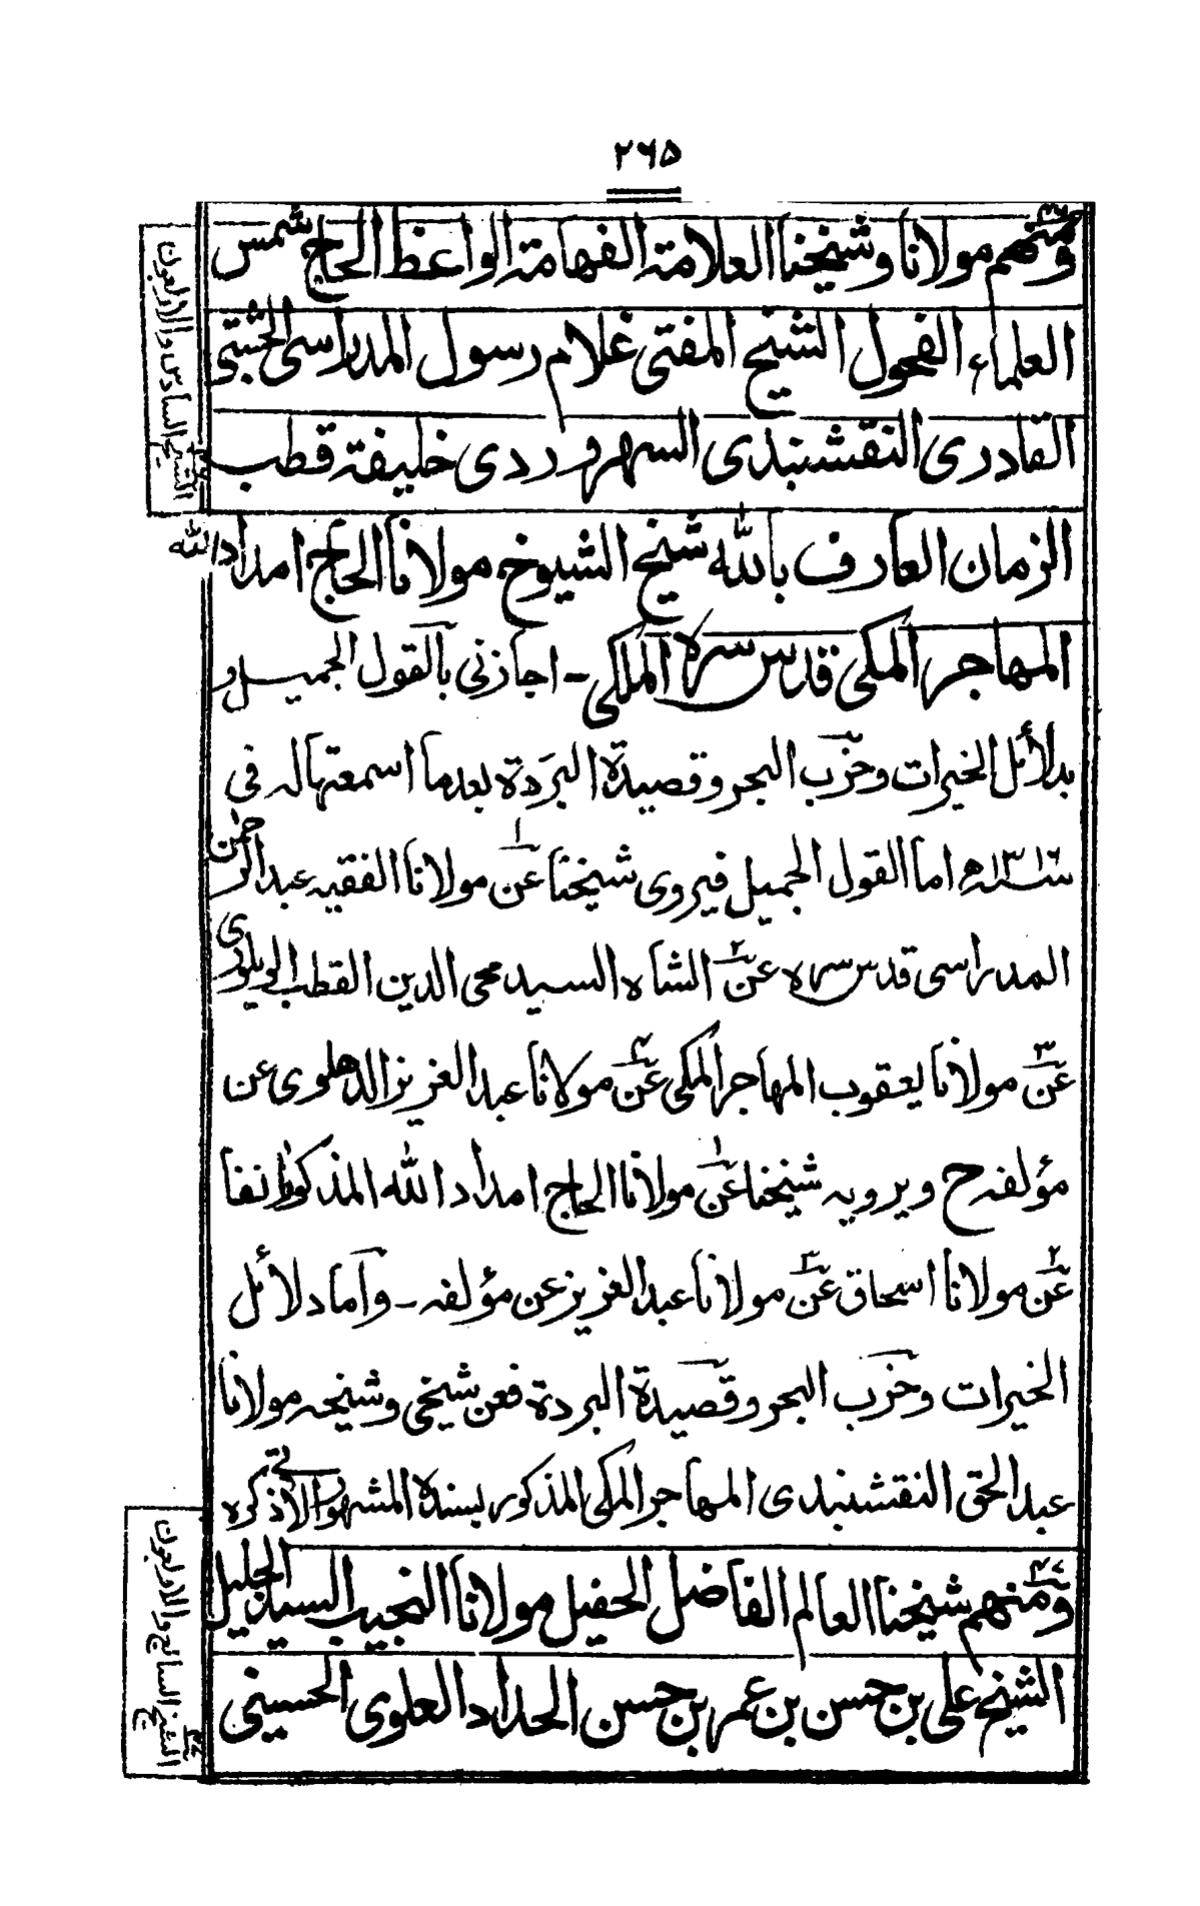 ٢٦٥
ومنهم مولانا وشيخنا العلامة الفهامة الواعظ الحاج شمس
العلماء الفحول الشيخ المفتى غلام رسول المدراسى الچشتى
القادرى النقشبندى السهروردى خليفة قطب
الزمان العارف بالله شيخ الشيوخ مولانا الحاج امداد الله
المهاجر المكى قدس سره الملكى - اجازنى بالقول الجميل و
بدلائل الخيرات وحزب البحر وقصيدة البردة بعد ما اسمعتها له فى
سنة ١٣١٦ه اما القول الجميل فيروى شيخنا عن١ مولانا الفقيه عبد الرحمن
المدراسى قدس سره عن٢ الشاه السيد محى الدين القطب الويلورى
عن٣ مولانا يعقوب المهاجر المكى عن٤ مولانا عبد العزيز الدهلوى عن
مؤلفه ح ويرويه شيخنا عن١ مولانا الحاج امداد الله المذكور انفا
عن٢ مولانا اسحاق عن٣ مولانا عبد العزيز عن مؤلفه - وأما دلائل
الخيرات وحزب البحر وقصيدة البردة فعن شيخى وشيخه مولانا
عبد الحق النقشبندى المهاجر المكى المذكور بسنده المشهور الآتى ذكره
٤٧ ومنهم شيخنا العالم الفاضل الحفيل مولانا النجيب السيد الجليل
الشيخ على بن حسن بن عمر بن حسن الحداد العلوى الحسينى
الشيخ السادس والاربعون
الشيخ السابع والاربعون